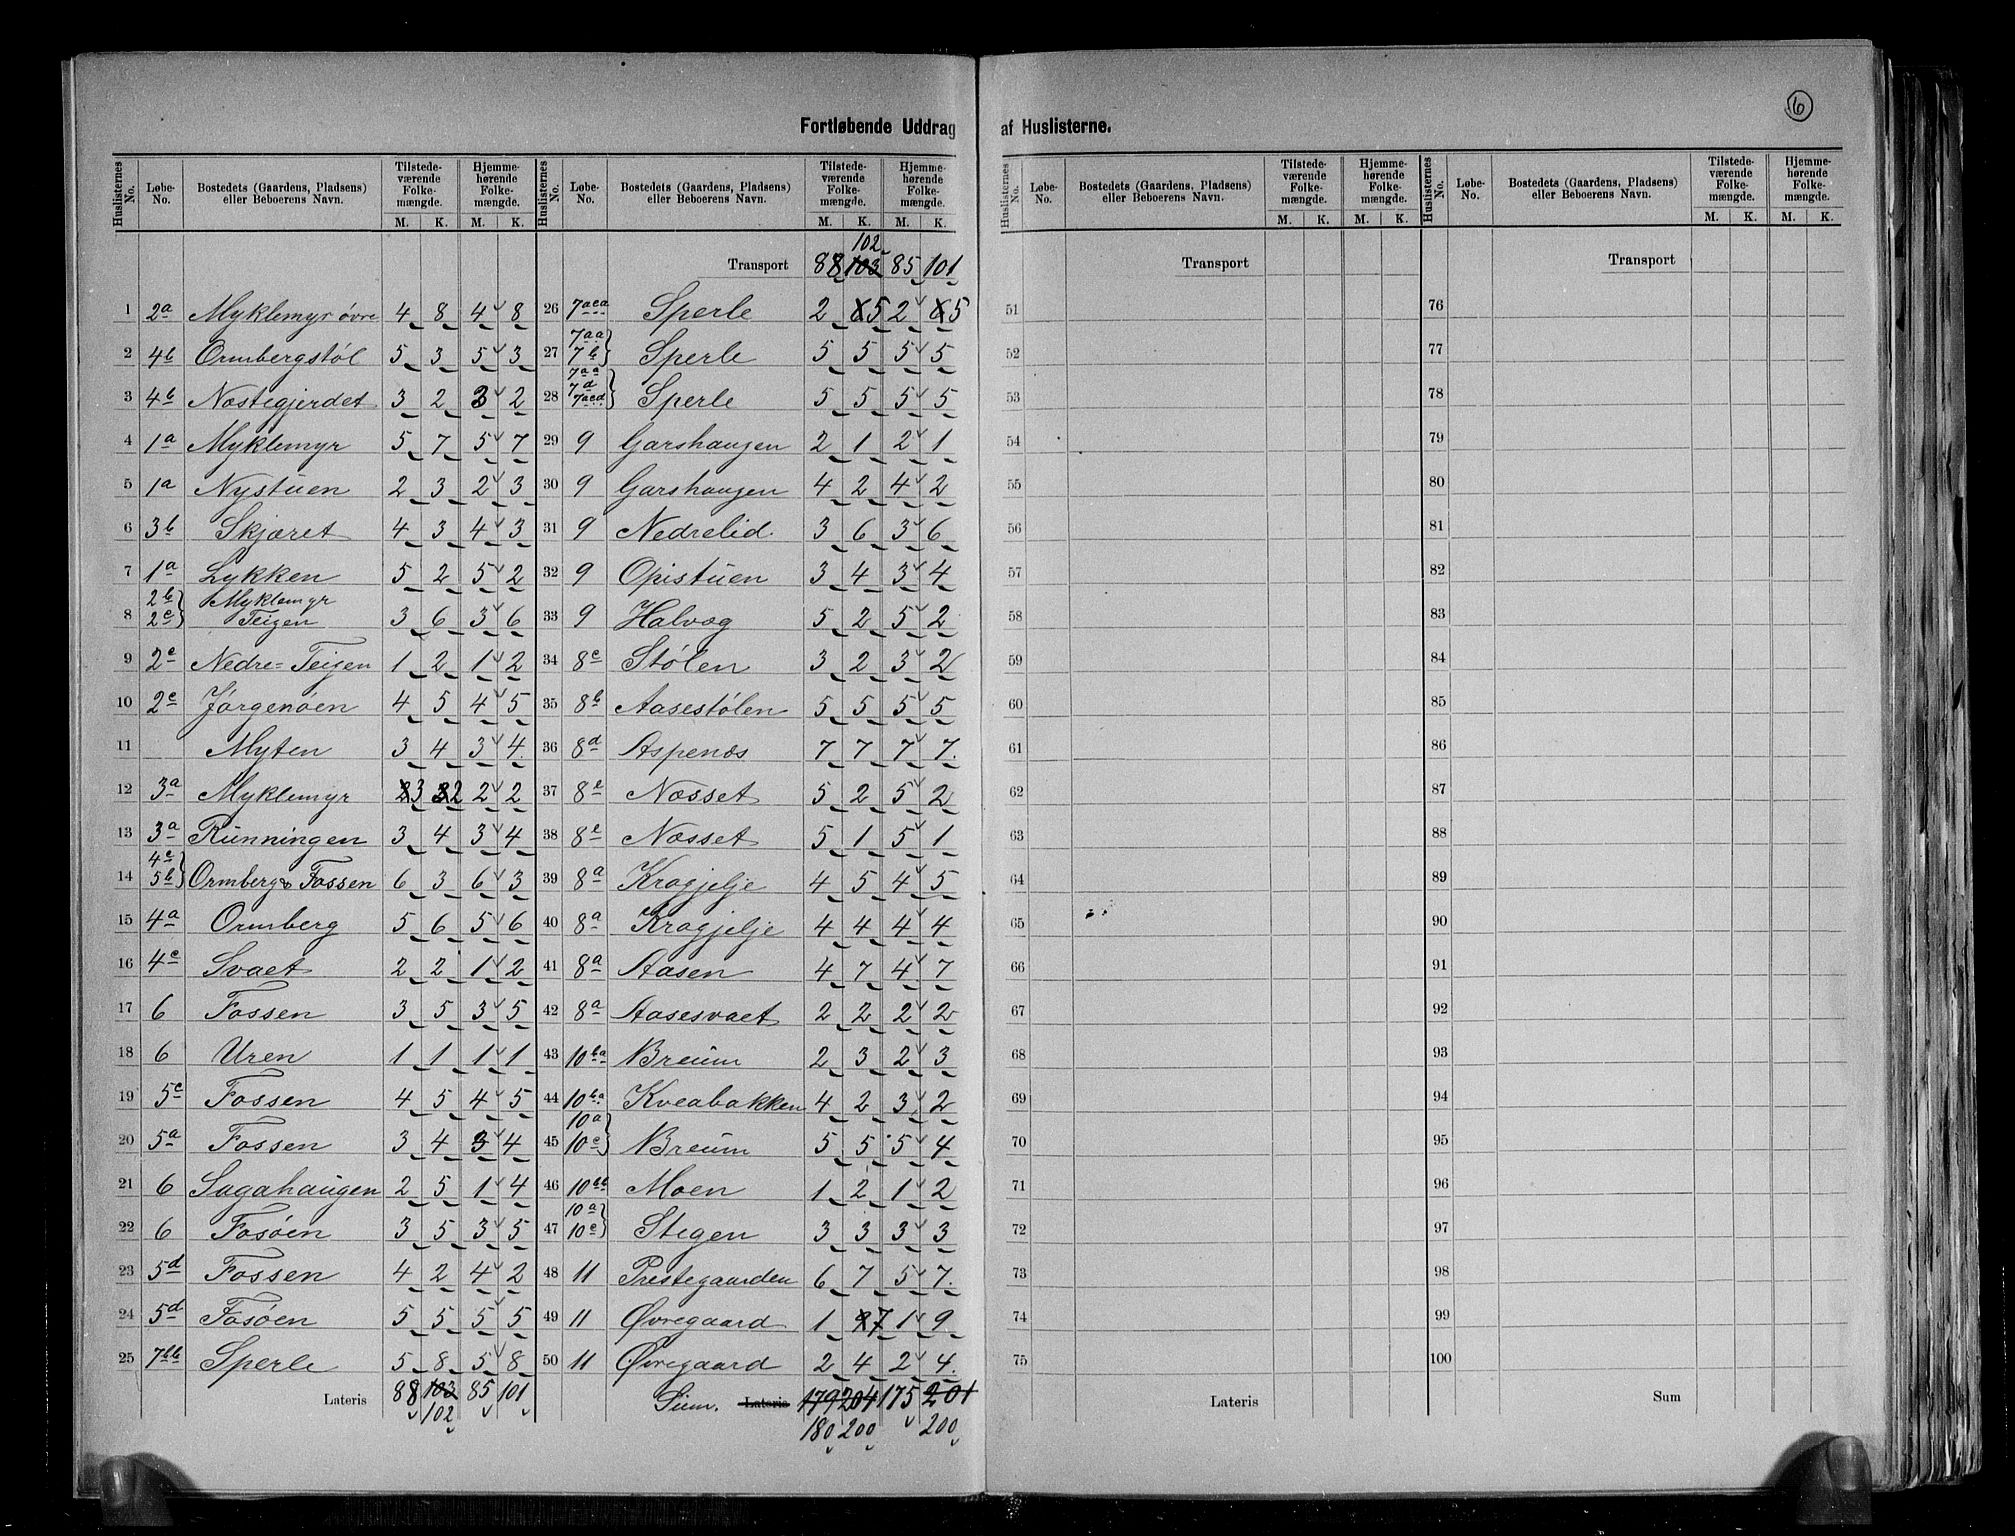 6
Fortløbende Uddrag af Huslisterne.
Huslisternes No. Løbe-No. Bostedets (Gaardens, Pladsens) eller Beboerens Navn. Tilstedeværende Folkemængde. M. K. Hjemmehørende Folkemængde. M. K.
1 2a Myklemyr øvre 4 8 4 8
2 4b Ormbergstøl 5 3 5 3
3 4b Nøstegjerdet 3 2 3 2
4 1a Myklemyr 5 7 5 7
5 1a Nystuen 2 3 2 3
6 3b Skjæret 4 3 4 3
7 1a Lykken 5 2 5 2
8 2b 2c Myklemyr Teigen 3 6 3 6
9 2c Nedre-Teigen 1 2 1 2
10 2c Jørgenøen 4 5 4 5
11 Myten 3 4 3 4
12 3a Myklemyr 3 2 2 2
13 3a Runningen 3 4 3 4
14 4c 5b Ormberg & Fossen 6 3 6 3
15 4a Ormberg 5 6 5 6
16 4c Svaet 2 2 1 2
17 6 Fossen 3 5 3 5
18 6 Uren 1 1 1 1
19 5c Fossen 4 5 4 5
20 5a Fossen 3 4 3 4
21 6 Sagahaugen 2 5 1 4
22 6 Fosøen 3 5 3 5
23 5d Fossen 4 2 4 2
24 5d Fosøen 5 5 5 5
25 7bb Sperle 5 8 5 8
Lateris 88 103 85 101
102
Huslisternes No. Løbe-No. Bostedets (Gaardens, Pladsens) eller Beboerens Navn. Tilstedeværende Folkemængde. M. K. Hjemmehørende Folkemængde. M. K.
102
Transport 88 103 85 101
26 7aca Sperle 2 5 2 5
27 7aa 7b Sperle 5 5 5 5
28 7aa 7d 7acd Sperle 5 5 5 5
29 9 Garshaugen 2 1 2 1
30 9 Garshaugen 4 2 4 2
31 9 Nedrelid 3 6 3 6
32 9 Opistuen 3 4 3 4
33 9 Halvøg 5 2 5 2
34 8c Stølen 3 2 3 2
35 8b Aasestølen 5 5 5 5
36 8d Aspenæs 7 7 7 7
37 8e Næsset 5 2 5 2
38 8e Næsset 5 1 5 1
39 8a Kragjelje 4 5 4 5
40 8a Kragjelje 4 4 4 4
41 8a Aasen 4 7 4 7
42 8a Aasesvaet 2 2 2 2
43 10ba Breum 2 3 2 3
44 10ba Kveabakken 4 2 3 2
45 10a 10c Breum 5 5 5 4
46 10bb Moen 1 2 1 2
47 10a 10c Stegen 3 3 3 3
48 11 Prestegaarden 6 7 5 7
49 11 Øvregaard 1 7 1 9
50 11 Øvregaard 2 4 2 4
Sum. Lateris 179 204 175 201
180 200 200
Huslisternes No. Løbe-No. Bostedets (Gaardens, Pladsens) eller Beboerens Navn. Tilstedeværende Folkemængde. M. K. Hjemmehørende Folkemængde. M. K.
Transport
51
52
53
54
55
56
57
58
59
60
61
62
63
64
65
66
67
68
69
70
71
72
73
74
75
Lateris
Huslisternes No. Løbe-No. Bostedets (Gaardens, Pladsens) eller Beboerens Navn. Tilstedeværende Folkemængde. M. K. Hjemmehørende Folkemængde. M. K.
Transport
76
77
78
79
80
81
82
83
84
85
86
87
88
89
90
91
92
93
94
95
96
97
98
99
100
Sum